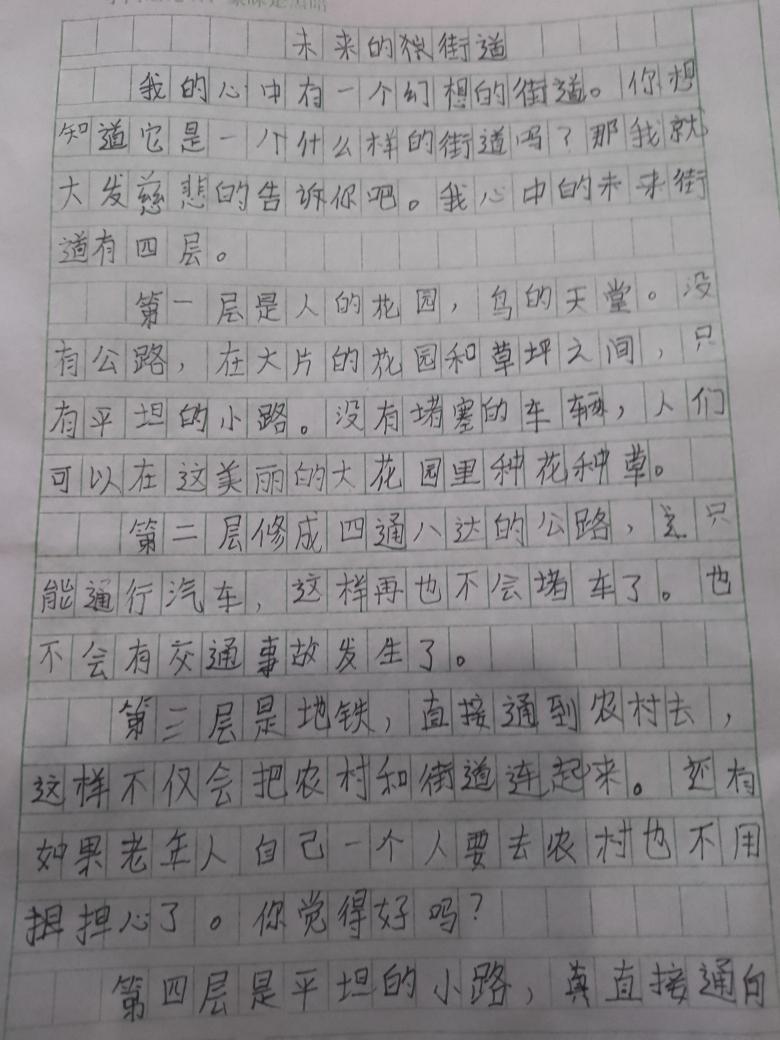 未来的街道
我的心中有一个幻想的街道。你想
知道它是一个什么样的街道吗？那我就
大发慈悲的告诉你吧。我心中的未来街
道有四层。
第一层是人的花园，鸟的天堂。没
有公路，在大片的花园和草坪之间，只
有平坦的小路。没有堵塞的车辆，人们
可以在这美丽的大花园里种花种草。
第二层修成四通八达的公路，只
能通行汽车，这样再也不会堵车了。也
不会有交通事故发生了。
第三层是地铁，直接通到农村去，
这样不仅会把农村和街道连起来。还有
如果老年人自己一个人要去农村也不用
担担心了。你觉得好吗？
第四层是平坦的小路，真直接通向